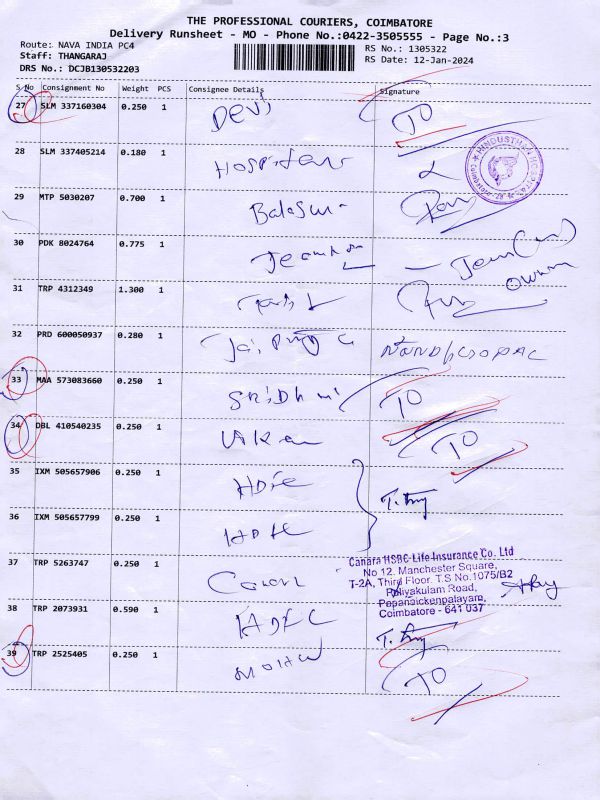 THE PROFESSIONAL COURIERS, COIMBATORE
Delivery Runsheet - MO - Phone No.:0422-3505555 - Page No.:3
Route: NAVA INDIA PC4
RS No.: 1305322
Staff: THANGARAJ
RS Date: 12-Jan-2024
DRS No.: DCJB130532203
S No Consignment No Weight PCS Consignee Details Signature
27 SLM 337160304 0.250 1 DEVi TO
28 SLM 337405214 0.180 1
HINDUSTHAN HOSPITAL
29 MTP 5030207 0.700 1
30 PDK 8024764 0.775 1
owner
31 TRP 4312349 1.300 1
32 PRD 600050937 0.280 1 NANDHGOPAL
33 MAA 573083660 0.250 1 TO
34 DBL 410540235 0.250 1 TO
35 IXM 505657906 0.250 1 HDFC
36 IXM 505657799 0.250 1 HDFC
37 TRP 5263747 0.250 1
Canara HSBC Life Insurance Co. Ltd
No 12. Manchester Square,
T-2A, Third Floor. T.S No.1075/B2
Puliyakulam Road,
Papanaickenpalayam,
Coimbatore - 641 037
38 TRP 2073931 0.590 1 HDFC
39 TRP 2525405 0.250 1 TO